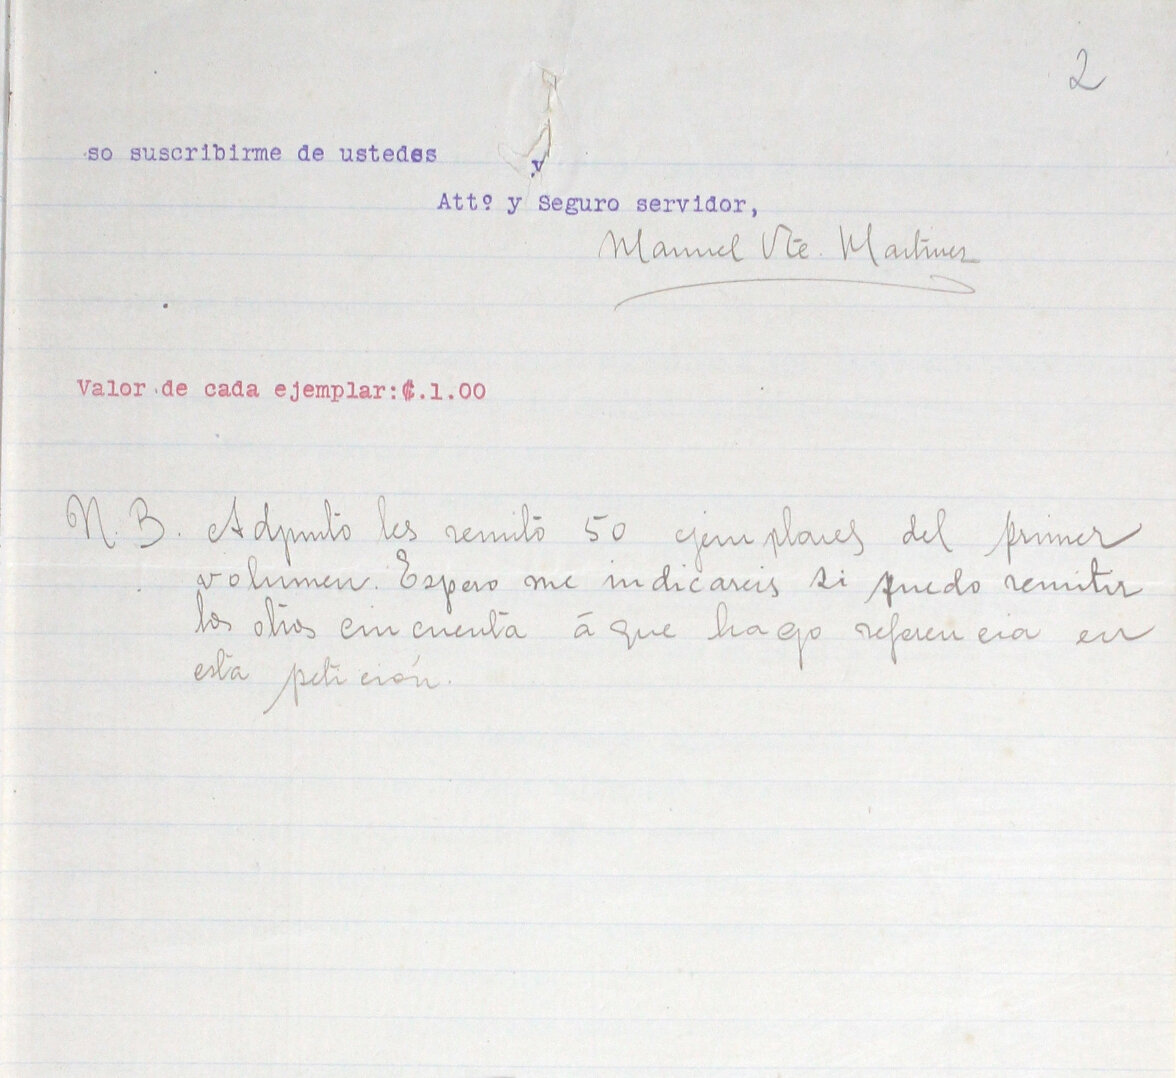 2
so suscribirme de ustedes
y
Attº y Seguro servidor,
Manuel Vte. Martinez
Valor de cada ejemplar:₡.1.00
N.B. Adjunto les remito 50 ejemplares del primer
volumen. Espero me indicareis si puedo remitir
los otros cincuenta á que hago referencia en
esta petición.